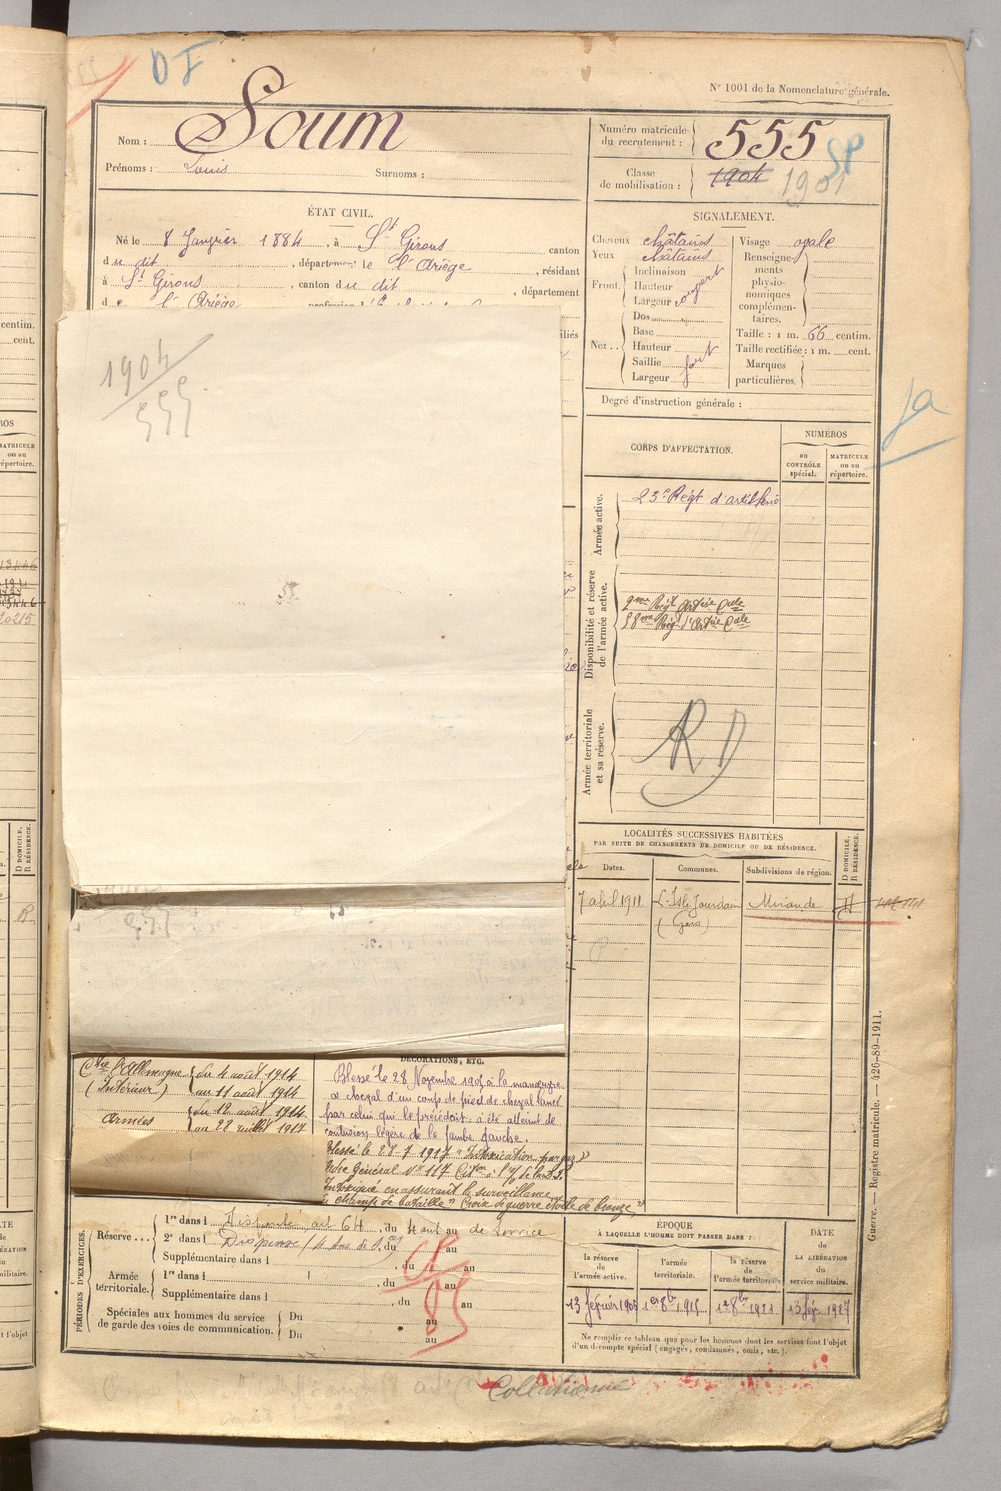 D F
N° 1001 de la Nomenclature générale.
Nom : Soum
Prénoms : Louis Surnoms :
Numéro matricule du recrutement : 555
SP
Classe de mobilisation : 1904 1901
ÉTAT CIVIL.
Né le 8 Janvier 1884, à St Girons canton
du dit, département de l'Ariège, résidant
à St Girons, canton du dit, département
de l'Ariège
SIGNALEMENT.
Cheveux châtains
Yeux châtains
Front.
Inclinaison
Hauteur
Largeur
Nez..
Dos
Base
Hauteur
Saillie
Largeur
fort
Visage ovale
Renseignements physionomiques complémentaires.
Taille : 1 m. 66 centim.
Taille rectifiée : 1 m. cent.
Marques particulières.
Degré d'instruction générale :
1904
555
58
CORPS D'AFFECTATION.
NUMÉROS
au CONTRÔLE spécial.
MATRICULE ou au répertoire.
Armée active.
23e Régt d'artillerie
Disponibilité et réserve de l'armée active.
2me Régt Artie Cale
58me Régt d'Artie Cale
Armée territoriale et sa réserve.
R D
LOCALITÉS SUCCESSIVES HABITÉES
PAR SUITE DE CHANGEMENTS DE DOMICILE OU DE RÉSIDENCE.
Dates.
Communes.
Subdivisions de région.
D DOMICILE. R RÉSIDENCE.
7 avril 1911 L'Isle Jourdain Mirande
(Gers)
DÉCORATIONS, ETC.
Ctre l'Allemagne du 4 août 1914
(Intérieur) au 11 août 1914
Armées du 12 août 1914
au 28 juillet 1917
Blessé le 28 Novembre 1905 à la manœuvre
à cheval d'un coup de pied de cheval lancé
par celui qui le précédait, a été atteint de
contusion légère de la jambe gauche.
Blessé le 28-7 1917 "Intoxication par gaz"
Ordre Général N° 117
Intoxiqué en assurant la surveillance
champ de bataille" Croix de guerre étoile de bronze"
PÉRIODES D'EXERCICES.
Réserve...
1re dans l Dispensé art 64, du 4 août au de Service
2e dans l Dispensé, du au
Supplémentaire dans l, du au
Armée territoriale.
1re dans l, du au
Supplémentaire dans l, du au
Spéciales aux hommes du service de garde des voies de communication.
Du au
Du au
ÉPOQUE
À LAQUELLE L'HOMME DOIT PASSER DANS :
la réserve de l'armée active.
l'armée territoriale.
la réserve de l'armée territoriale
DATE de LA LIBÉRATION du service militaire.
13 février 1908 1er 8bre 1915 1er 8bre 1921 13 fév. 1927
Ne remplir ce tableau que pour les hommes dont les services font l'objet
d'un décompte spécial (engagés, condamnés, omis, etc.).
Collationné
Guerre. — Registre matricule. — 426-89-1911.